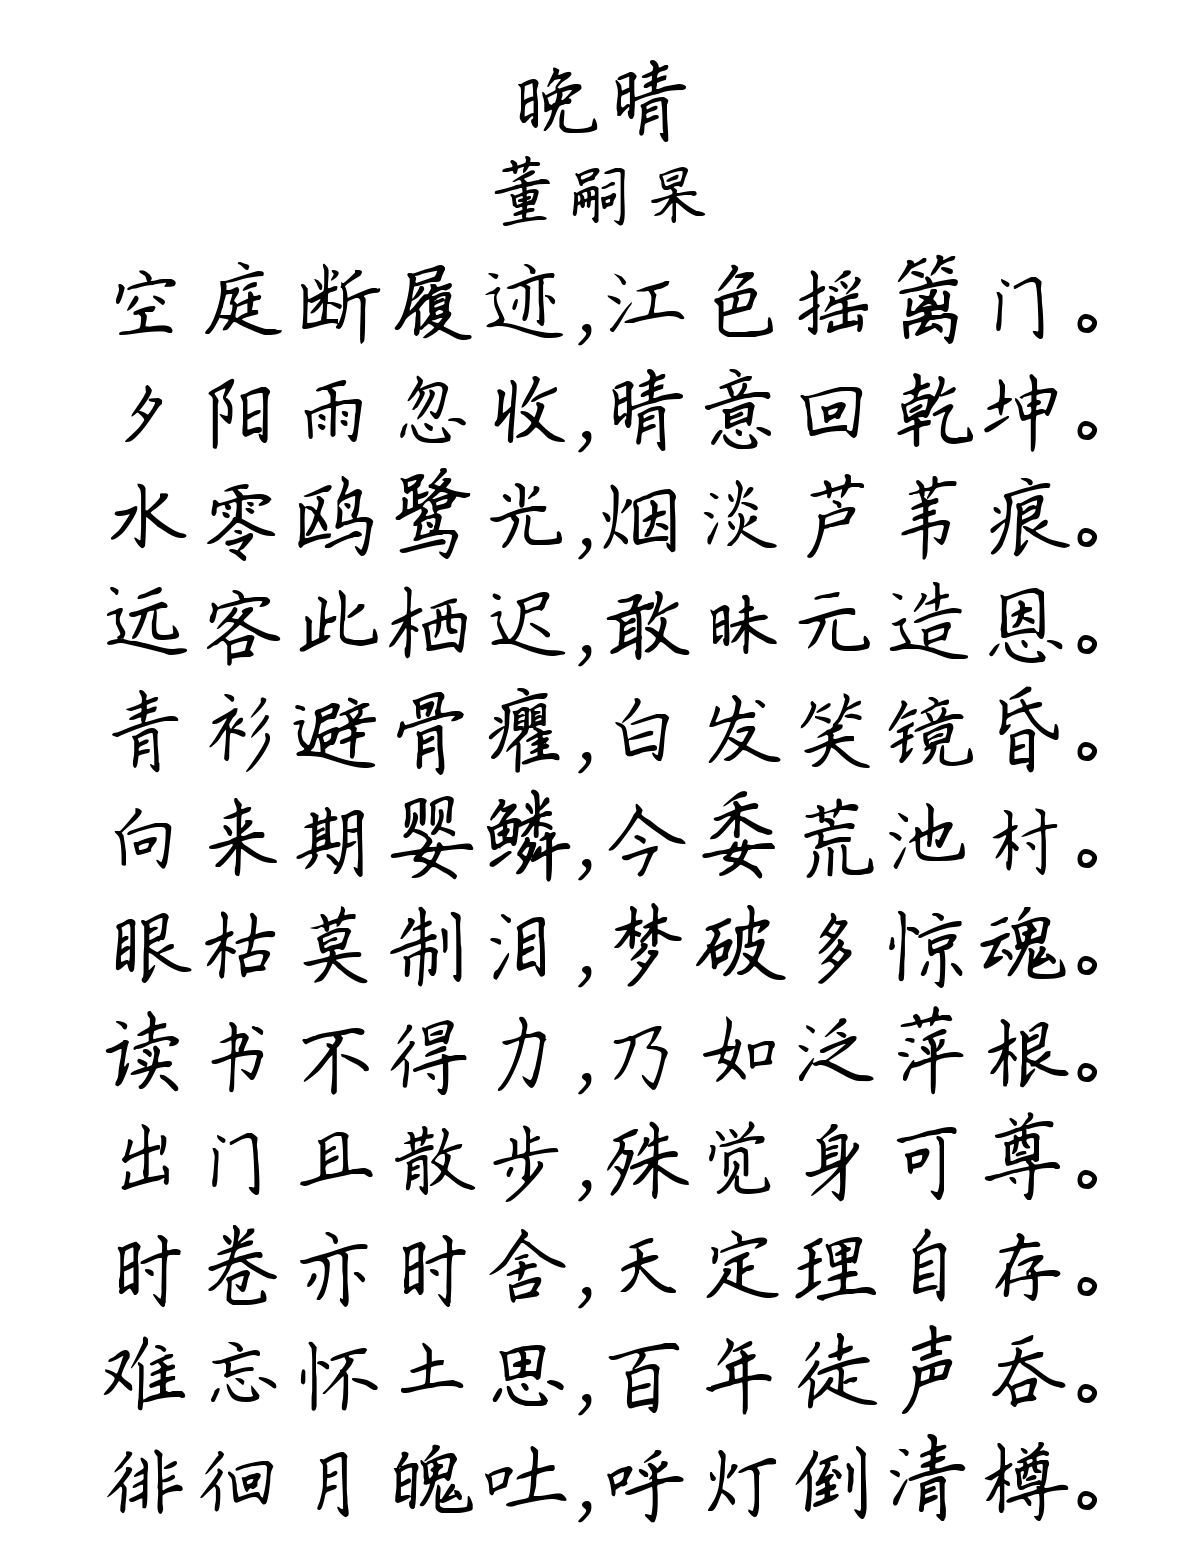 晚晴
董嗣杲
空庭断履迹,江色摇篱门。
夕阳雨忽收,晴意回乾坤。
水零鸥鹭光,烟淡芦苇痕。
远客此栖迟,敢昧元造恩。
青衫避骨癯,白发笑镜昏。
向来期婴鳞,今委荒池村。
眼枯莫制泪,梦破多惊魂。
读书不得力,乃如泛萍根。
出门且散步,殊觉身可尊。
时卷亦时舍,天定理自存。
难忘怀土思,百年徒声吞。
徘徊月魄吐,呼灯倒清樽。